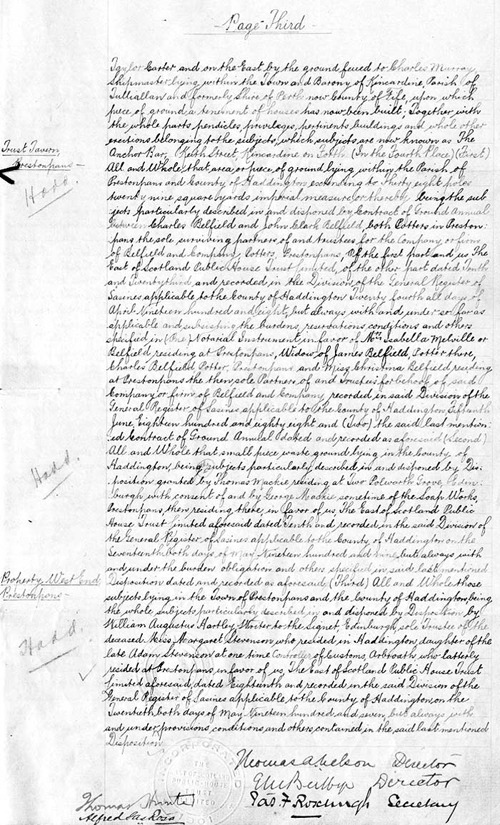 Page Third
Taylor Carter and on the East by the ground feued to Charles Murray
Shipmaster lying within the Town and Barony of Kincardine Parish of
Tulliallan and formerly Shire of Perth now County of Fife, upon which
piece of ground a tenement of houses has now been built; Together with
the whole parts, pendicles, privileges, pertinents, buildings and whole other
erections belonging to the subjects, which subjects are now known as The
Anchor Bar, Keith Street, Kincardine on Forth. (In the Fourth Place) (First)
Trust Tavern
Prestonpans
Hadd.
All and Whole that area or piece of ground lying within the Parish of
Prestonpans and County of Haddington extending to Thirty eight poles
twenty nine square yards imperial measure or thereby being the sub-
jects particularly described in and disponed by Contract of Ground Annual
between Charles Belfield and John Clark Belfield both Potters in Preston-
pans the sole surviving partners of and trustees for the Company or firm
of Belfield and Company, Potters, Prestonpans, of the first part and us The
East of Scotland Public House Trust Limited, of the other part dated Tenth
and Twentythird, and recorded in the Division of the General Register of
Sasines applicable to the County of Haddington Twenty fourth all days of
April Nineteen hundred and eight, but always with and under so far as
applicable and subsisting the burdens, reservations, conditions and others
specified in (One) Notarial Instrument in favor of Mrs Isabella Melville or
Belfield residing at Prestonpans, Widow of James Belfield, Potter there,
Charles Belfield Potter, Prestonpans and Miss Christina Belfield residing
at Prestonpans the then sole Partners of and Trustees for behoof of said
Company or firm of Belfield and Company, recorded in said Division of the
General Register of Sasines applicable to the County of Haddington
June Eighteen hundred and eighty eight and (Two) the said last mention-
ed Contract of Ground Annual dated and recorded as aforesaid (Second)
Hadd.
All and Whole that small piece waste ground lying in the County of
Haddington being subjects particularly described in and disponed by Dis-
position granted by Thomas Mackie residing at Two Polworth Grove, Edin-
burgh with consent of and by George Mackie, sometime of the Soap Works,
Prestonpans, then residing there, in favor of us, The East of Scotland Public
House Trust Limited aforesaid dated Tenth and recorded in the said Division of
the General Register of Sasines applicable to the County of Haddington on the
Seventeenth both days of May Nineteen hundred and nine, but always with
and under the burden obligation and others specified in said last mentioned
Property West End
Prestonpans
Hadd.
Disposition dated and recorded as aforesaid (Third) All and Whole those
subjects lying in the Town of Prestonpans and the County of Haddington being
the whole subjects particularly described in and disponed by Disposition by
William Augustus Hartley Writer to the Signet, Edinburgh, sole Trustee of the
deceased Miss Margaret Stevenson who resided in Haddington, daughter of the
late Adam Stevenson at one time Controller of Customs, Arbroath, who latterly
resided at Prestonpans, in favor of us, The East of Scotland Public House Trust
Limited aforesaid, dated Eighteenth and recorded in the said Division of the
General Register of Sasines applicable to the County of Haddington on the
Twentieth both days of May Nineteen hundred and seven, but always with
and under, provisions, conditions, and others, contained in the said last mentioned
Disposition
Thomas Nelson Director
Director
Jas. F. Roxburgh Secretary
Thomas Hunter
Alfred Jas Ross